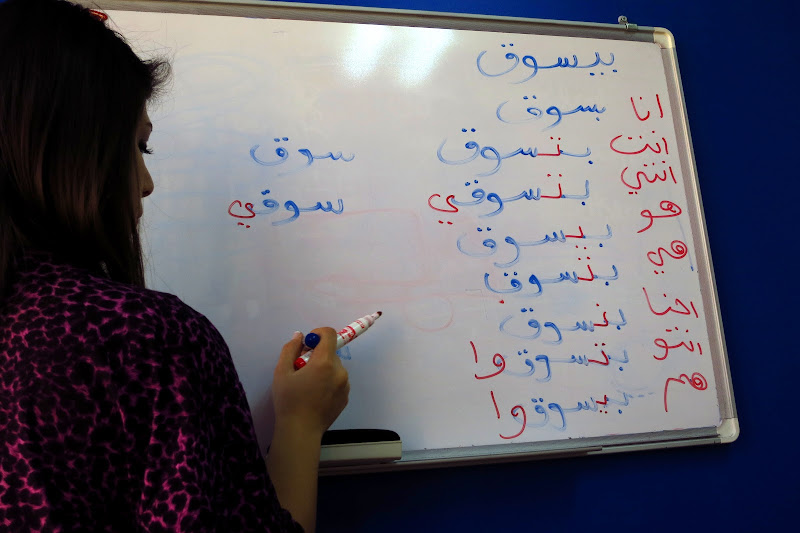 بيسوق
انا بسوق
انت بتسوق سوق
انتي بتسوقي سوقي
هو بيسوق
هي بتسوق
احنا بنسوق
انتو بتسوقوا
هم بيسوقوا